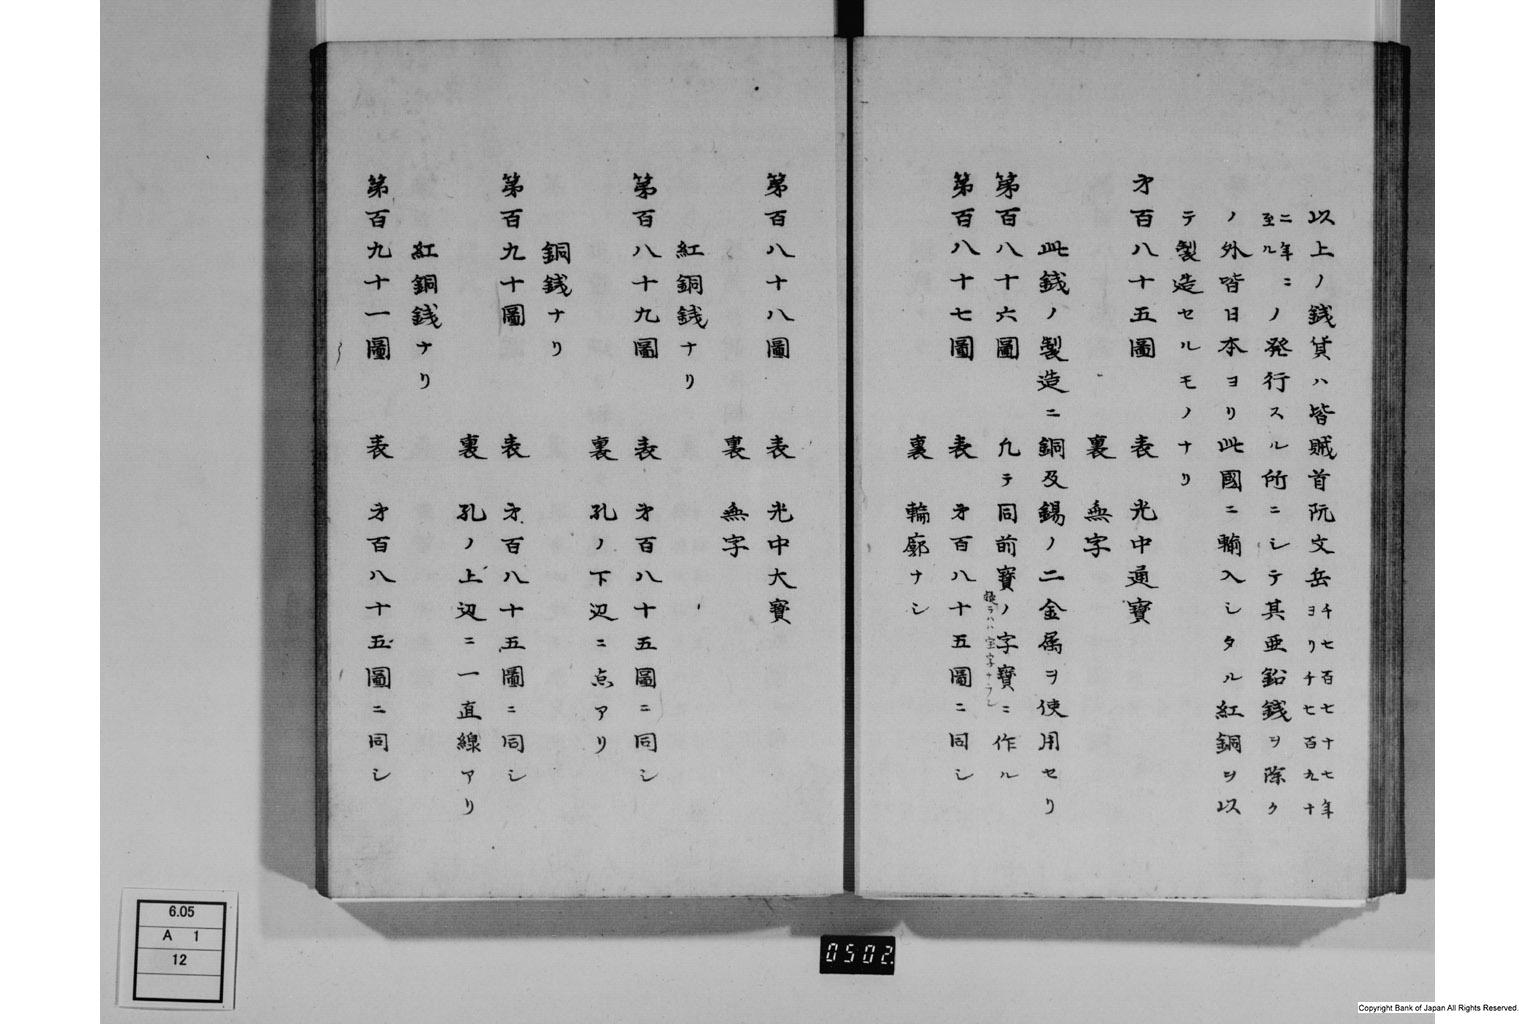 以上ノ銭貨ハ皆賊首阮文岳千七百七十七年ヨリ千七百九十
二年ニ至ルノ発行スル所ニシテ其亜鉛銭ヲ除ク
ノ外皆日本ヨリ此國ニ輸入シタル紅銅ヲ以
テ製造セルモノナリ
才百八十五圖 表 光中通寳
裏 無字
此銭ノ製造ニ銅及錫ノ二金属ヲ使用セリ
第百八十六圖 凢テ同前寳ノ字寶ニ作ル
第百八十七圖 表 才百八十五圖ニ同シ
裏 輪廓ナシ
第百八十八圖 表 光中大寳
裏 無字
紅銅銭ナリ
第百八十九圖 表 才百八十五圖ニ同シ
裏 孔ノ下辺ニ点アリ
銅銭ナリ
第百九十圖 表 才百八十五圖ニ同シ
裏 孔ノ上辺ニ一直線アリ
紅銅銭ナリ
第百九十一圖 表 才百八十五圖ニ同シ
6.05
A 1
12
0502
Copyright Bank of Japan All Rights Reserved.